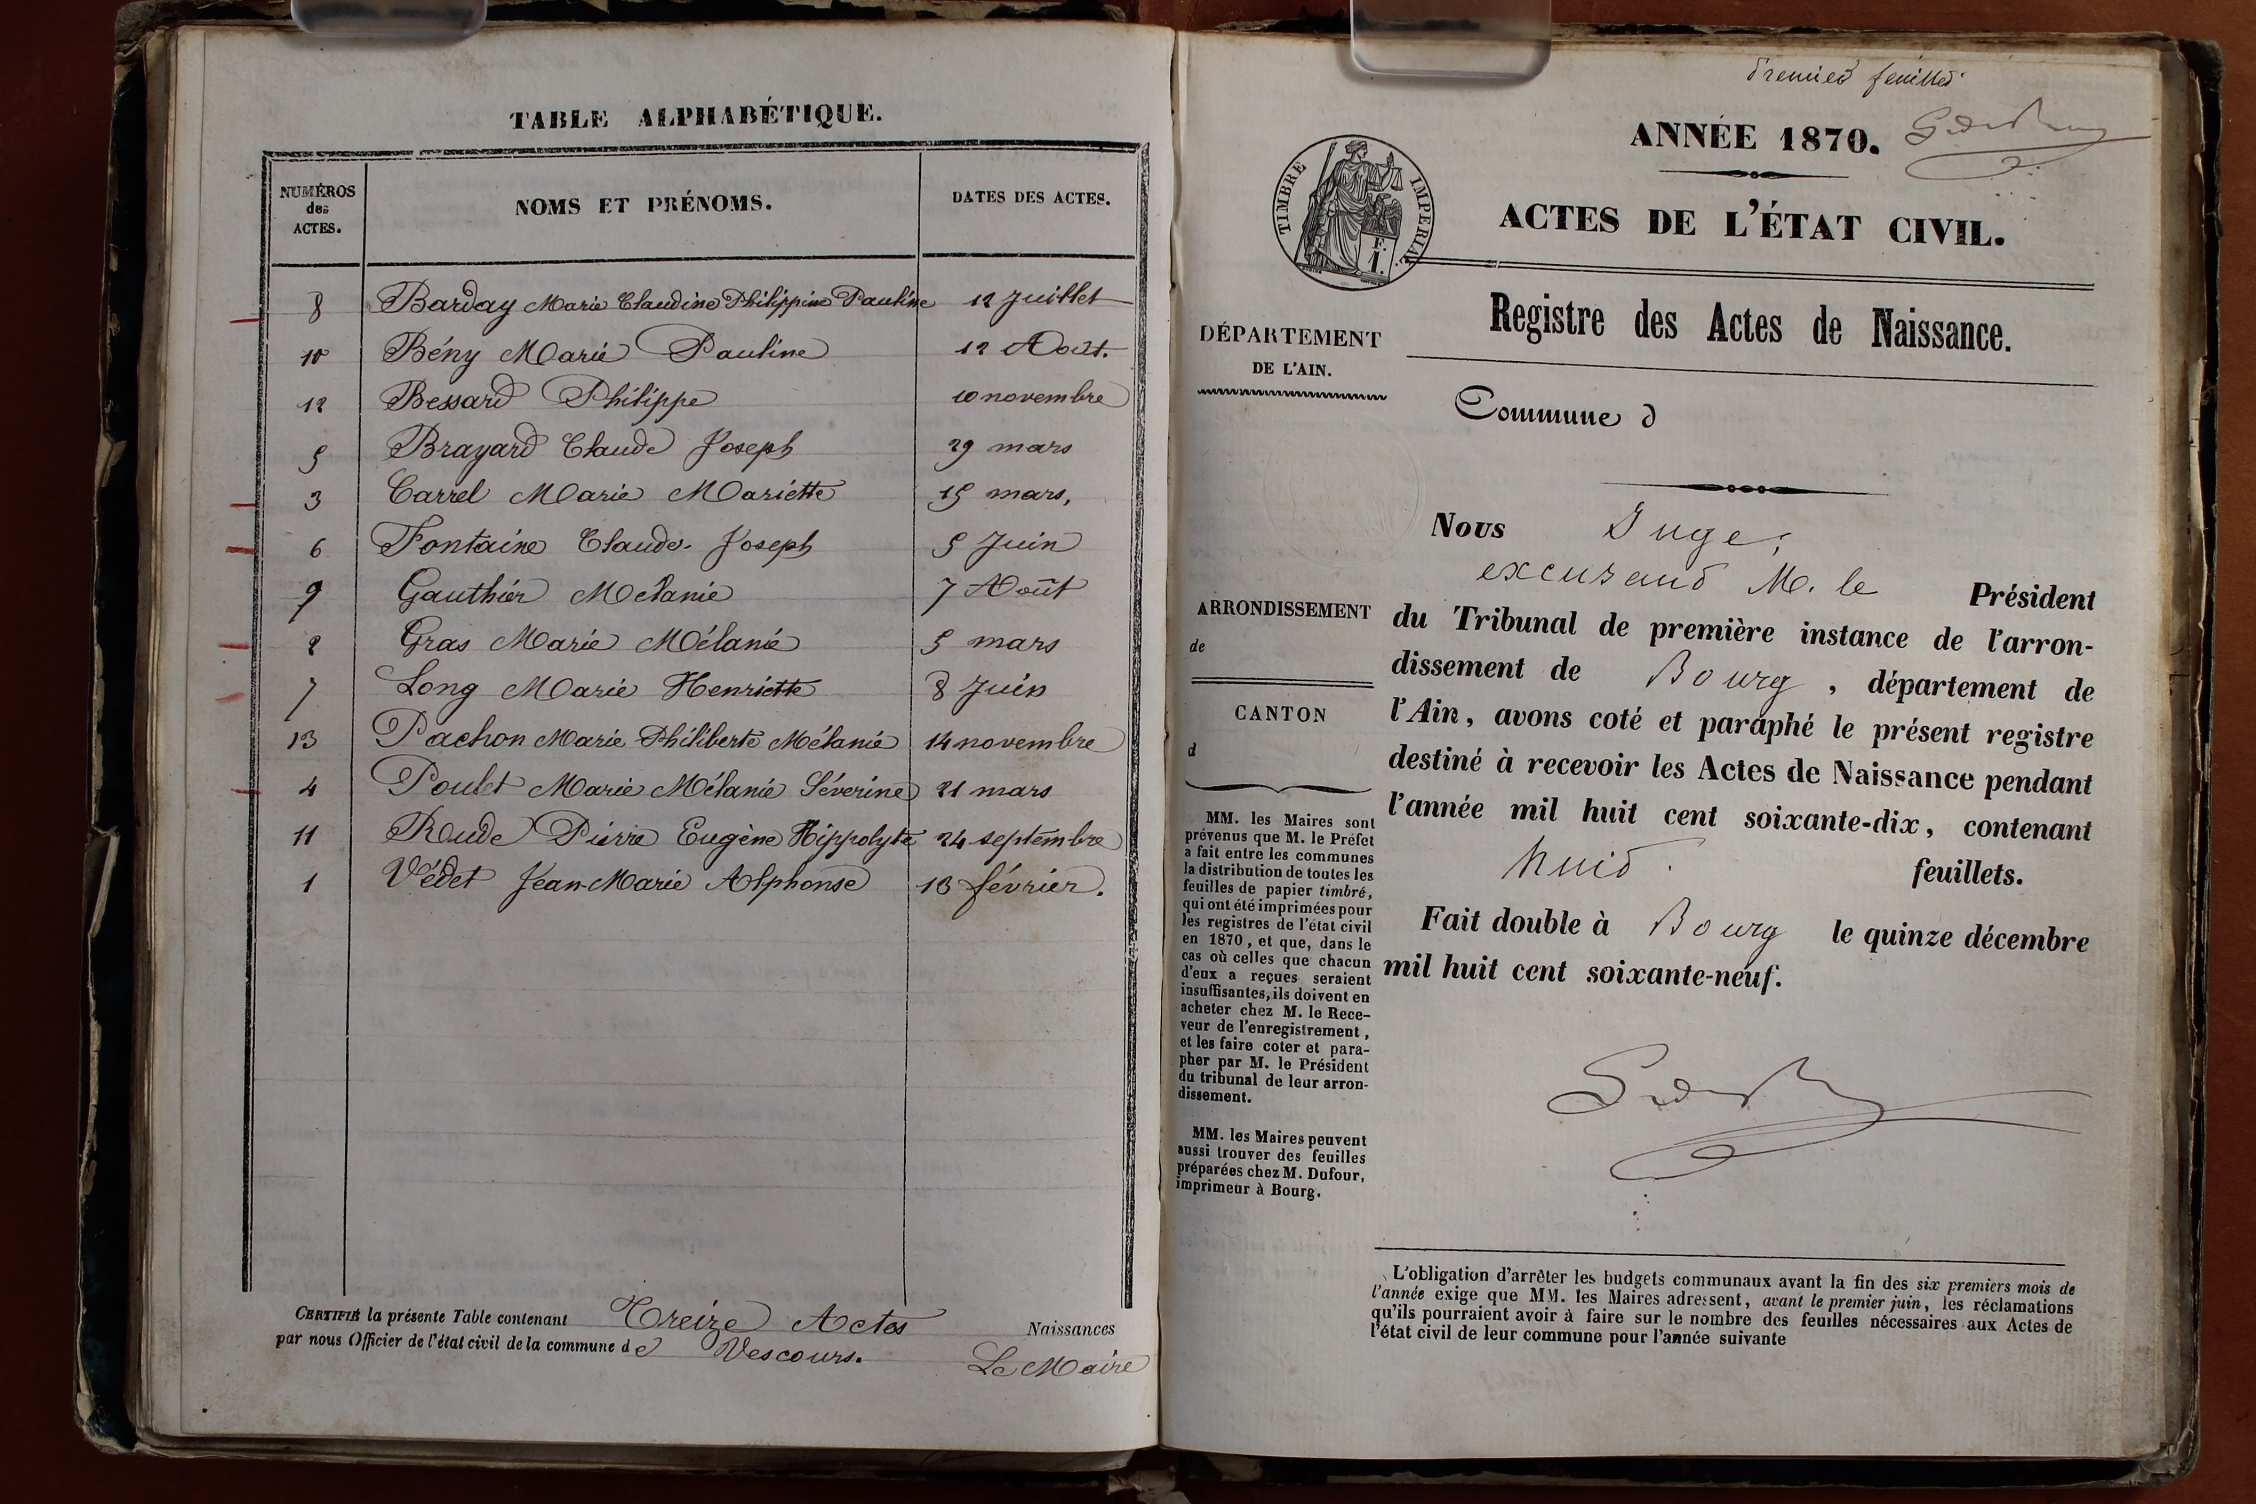 TABLE ALPHABÉTIQUE.
NUMÉROS des ACTES.
NOMS ET PRÉNOMS.
DATES DES ACTES.
8 Barday Marie Claudine Philippine Pauline 12 Juillet
10 Bény Marie Pauline 12 Août.
12 Bessard Philippe 10 novembre
5 Brayard Claude Joseph 29 mars
3 Carrel Marie Mariette 15 mars,
6 Fontaine Claude Joseph 5 Juin
9 Gauthier Mélanie 7 Août
2 Gras Marie Mélanie 5 mars
7 Long Marie Henriette 8 Juin
13 Pachon Marie Philiberte Mélanie 14 novembre
4 Poulet Marie Mélanie Séverine 21 mars
11 Roude Pierre Eugène Hippolyte 24 septembre
1 Védet Jean-Marie Alphonse 13 février.
CERTIFIÉ la présente Table contenant Treize Actes Naissances
par nous Officier de l'état civil de la commune de Vescours.
Le Maire
Premier feuillet
ANNÉE 1870.
TIMBRE IMPERIAL
E. I.
ACTES DE L'ÉTAT CIVIL.
Registre des Actes de Naissance.
DÉPARTEMENT
DE L'AIN.
Commune d
ARRONDISSEMENT
de
CANTON
d
MM. les Maires sont
prévenus que M. le Préfet
a fait entre les communes
la distribution de toutes les
feuilles de papier timbré,
qui ont été imprimées pour
les registres de l'état civil
en 1870, et que, dans le
cas où celles que chacun
d'eux a reçues seraient
insuffisantes, ils doivent en
acheter chez M. le Rece-
veur de l'enregistrement,
et les faire coter et para-
pher par M. le Président
du tribunal de leur arron-
dissement.
MM. les Maires peuvent
aussi trouver des feuilles
préparées chez M. Dufour,
imprimeur à Bourg.
Nous Juge,
excusant M. le Président
du Tribunal de première instance de l'arron-
dissement de Bourg, département de
l'Ain, avons coté et paraphé le présent registre
destiné à recevoir les Actes de Naissance pendant
l'année mil huit cent soixante-dix, contenant
huit feuillets.
Fait double à Bourg le quinze décembre
mil huit cent soixante-neuf.
L'obligation d'arrêter les budgets communaux avant la fin des six premiers mois de
l'année exige que MM. les Maires adressent, avant le premier juin, les réclamations
qu'ils pourraient avoir à faire sur le nombre des feuilles nécessaires aux Actes de
l'état civil de leur commune pour l'année suivante